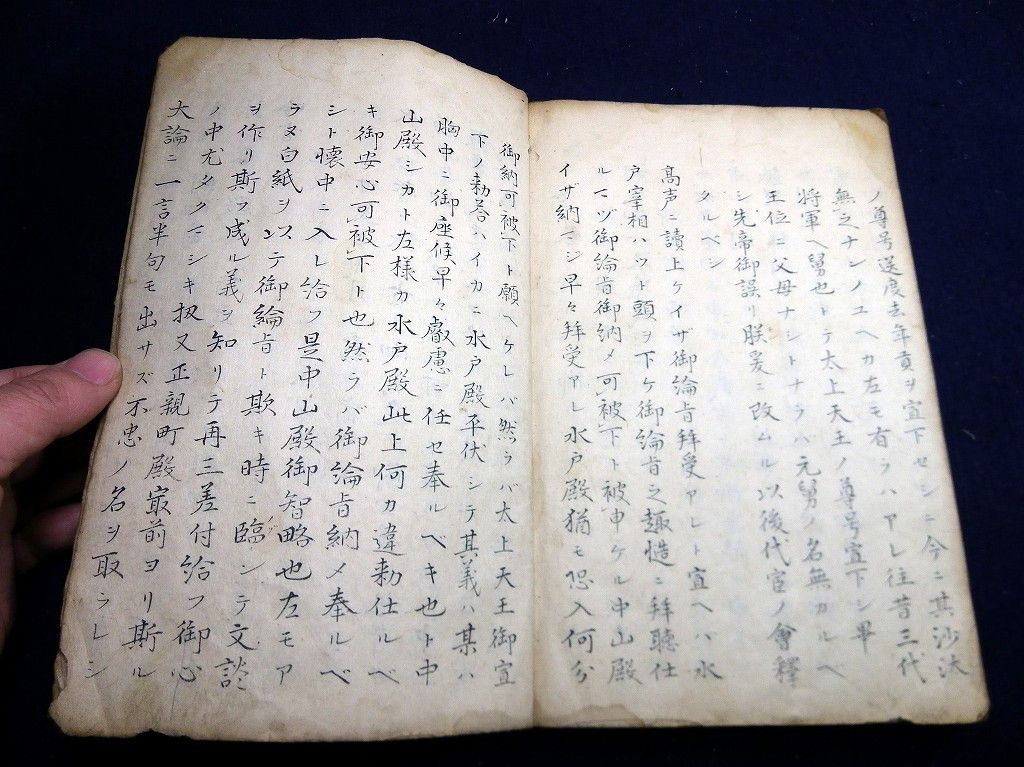 ノ尊号送度去年貢ヲ宣下せシニ今ニ其沙汰
無之ナンノユヘカ左モ有ラハアレ往昔三代
将軍ヘ舅也トテ太上天王ノ尊号宣下シ畢
王位ニ父母ナシトナラハ元舅ノ名無カルベ
シ先帝御誤リ朕爰ニ改ムル以後代官ノ會釋
タルベシ
高声ニ讀上ケイザ御綸旨拜受アレト宣ヘハ水
戸宰相ハット頭ヲ下ケ御綸旨之趣慥ニ拜聴仕
ルマヅ御綸旨御納メ可被下ト被申ケル中山殿
イザ納マジ早々拜受アレ水戸殿猶モ恐入何分
御納可被下ト願ヘケレバ然ラバ太上天王御宣
下ノ勅答ハイカニ水戸殿平伏シテ其義ハ某ハ
胸中ニ御座候早々叡慮ニ任セ奉ルベキ也ト中
山殿シカト左様カ水戸殿此上何カ違勅仕ルベ
キ御安心可被下ト也然ラバ御綸旨納メ奉ルベ
シト懐中ニ入レ給フ是中山殿御智略也左モア
ラヌ白紙ヲ以テ御綸旨ト欺キ時ニ臨ンテ文談
ヲ作リ斯ク成ル義ヲ知リテ再三差付給フ御心
ノ中尤タクマシキ扨又正親町殿最前ヨリ斯ル
大論ニ一言半句モ出サズ不忠ノ名ヲ取ラレシ